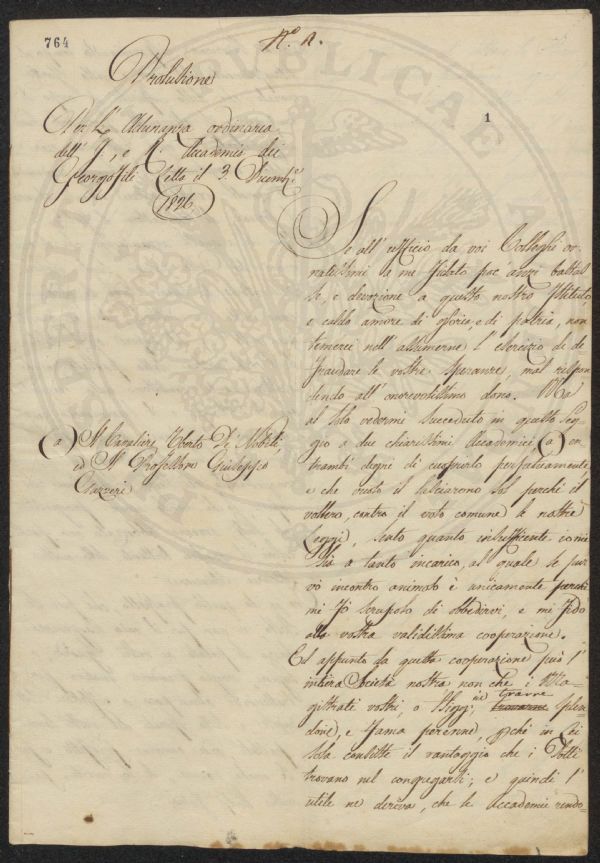 764
N.º 1.
1
Prolusione
Per L'Adunanza ordinaria
dell' I. e R. Accademia dei
Georgofili letta il 3. Dicemb.e
1826.
Se all' uffizio da voi Colleghi or-
natissimi a me fidato poc' anzi bastas
se, e devozione a questo nostro Istituto
e caldo amore di gloria, e di patria, non
temerei nell' assumerne l' esercizio di de
fraudare le vostre speranze, mal rispon
dendo all' onorevolissimo dono. Ma
al solo vedermi succeduto in questo seg
gio a due chiarissimi Accademici (a) en-
trambi degni di cuoprirlo perpetuamente
e che vuoto il lasciarono sol perchè il
vollero, contro il voto comune le nostre
Leggi, sento quanto insufficente io mi
sia a tanto incarico, al quale se pur
vò incontro animoso è unicamente perchè
mi fo scrupolo di obbedirvi, e mi fido
alla vostra validissima cooperazione.
Ed appunto da questa cooperazione può l'
intiera Società nostra non che i Ma-
gistrati vostri, o Sigg.i, trarre splen
dore, e fama perenne, chè in lei
sola consiste il vantaggio che i Dotti
trovano nel congregarsi; e quindi l'
utile ne deriva, che le Accademie rendo-
(a) Il Cavaliere Uberto De' Nobili,
ed Il Professore Giuseppe
Gazzeri
PERIT REIPUBLICAE